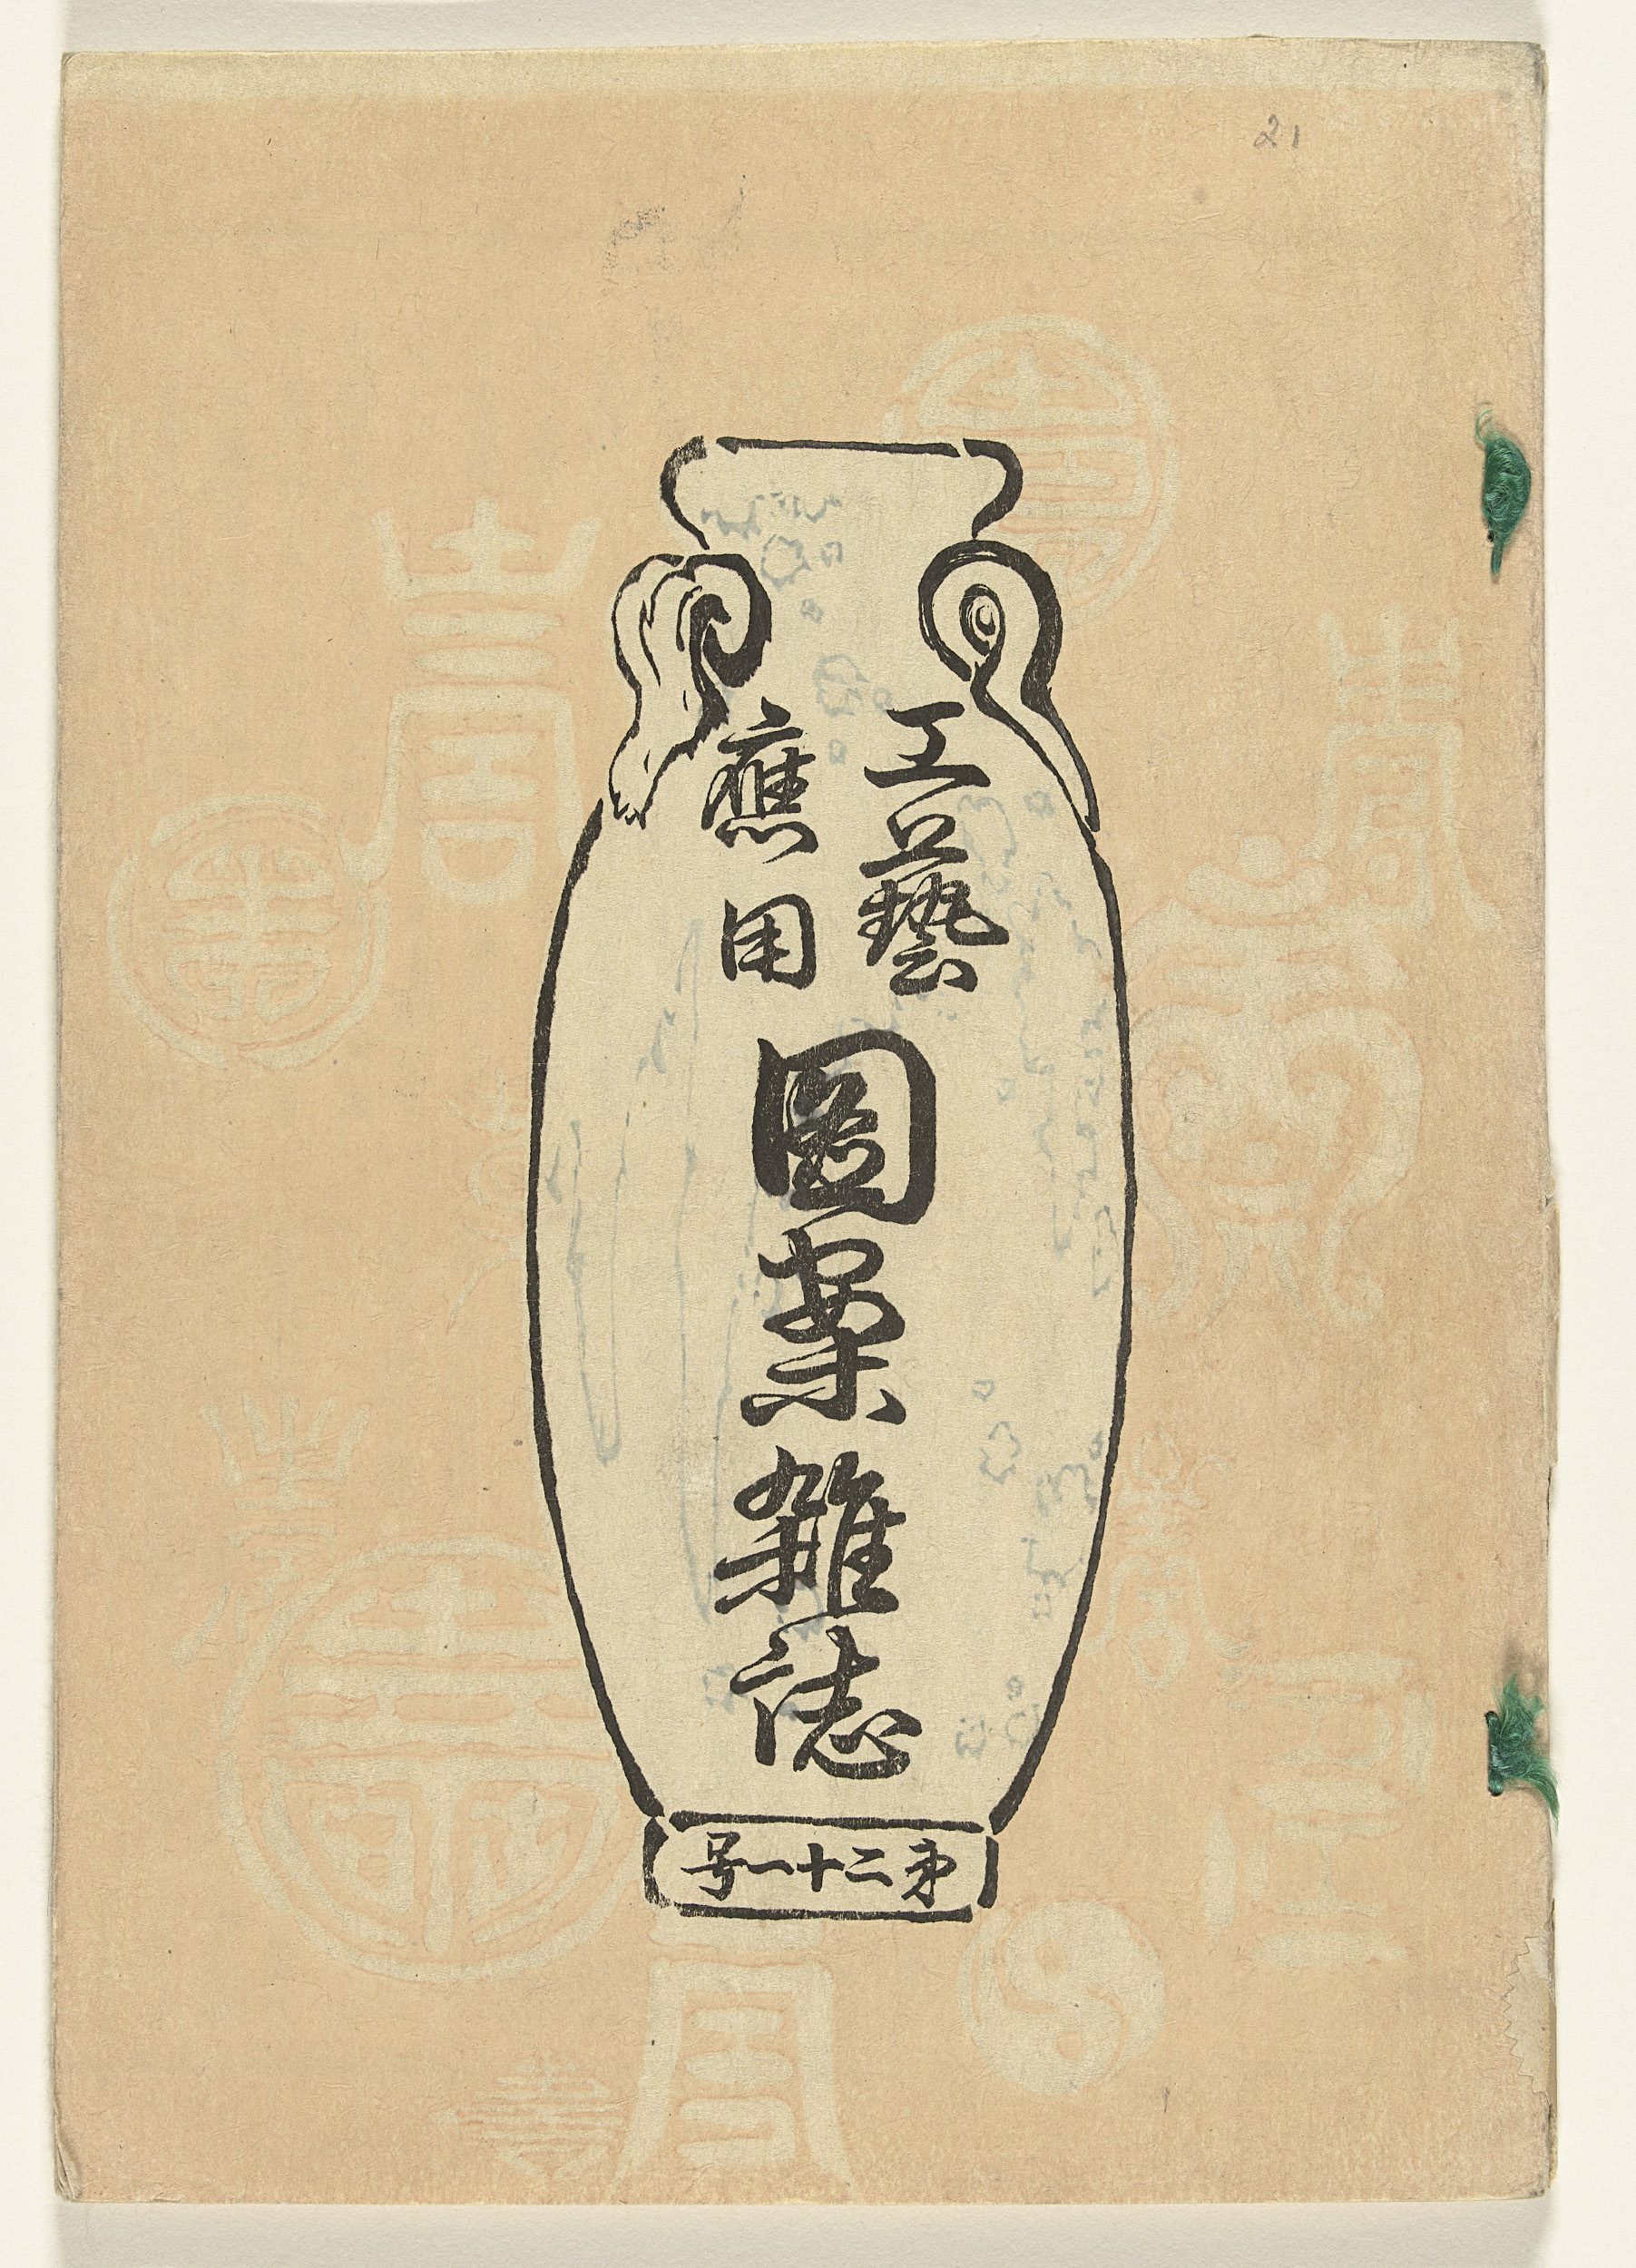 21
工藝
應用
圖案雜誌
第二十一号